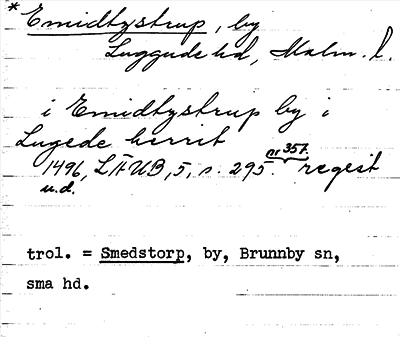 *Emidtystrup, by
Luggude hd, Malm. l.
i Emidtystrup by i
Lugede herrit
1496, LÄUB, 5, s. 295. nr 357. regest
u.d.
trol. = Smedstorp, by, Brunnby sn,
sma hd.